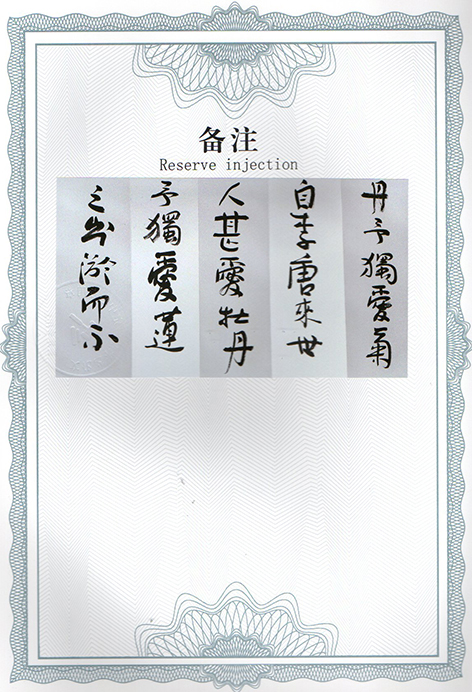 备注
Reserve injection
丹予獨愛菊
自李唐來世
人甚愛牡丹
予獨愛蓮
之出淤而不